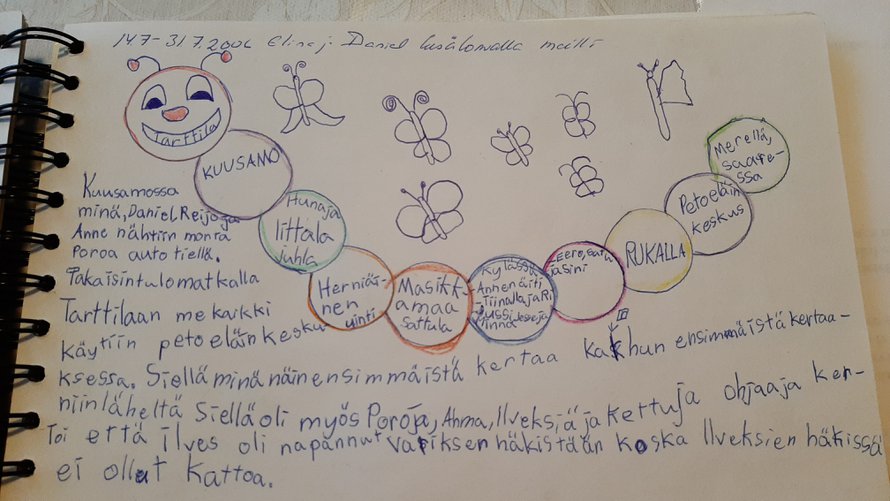 14.7-31.7.2006 Elina j. Daniel kesälomalla meillä
Tarttila
KUUSAMO
Hunaja
Iittala
Juhla
Herniäi-
nen
uinti
Masikk-
amaa
Sattula
Kylässä
Annen äiti
Tiinalla ja Ri
Jussi Jesse ja
Minna
Eero, Satu
ja Sini
RUKALLA
Petoeläin
keskus
Merellä,
saare-
ssa
Kuusamossa
minä, Daniel, Reijo ja
Anne nähtiin monta
Poroa auto tiellä.
Takaisintulomatkalla
Tarttilaan me kaikki
käytiin petoeläinkesku-
ksessa. Siellä minä näin ensimmäistä kertaa karhun ensimmäistä kertaa-
niin läheltä Siellä oli myös Poroja, Ahma, Ilveksiä ja kettuja ohjaaja ker-
Toi että ilves oli napannut variksen häkistään koska Ilveksien häkissä
ei ollut kattoa.